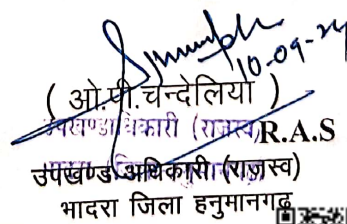 10-09-24
( ओ.पी.चन्देलिया )
उपखण्डाधिकारी (राजस्व) R.A.S
उपखण्ड अधिकारी (राजस्व)
भादरा जिला हनुमानगढ़